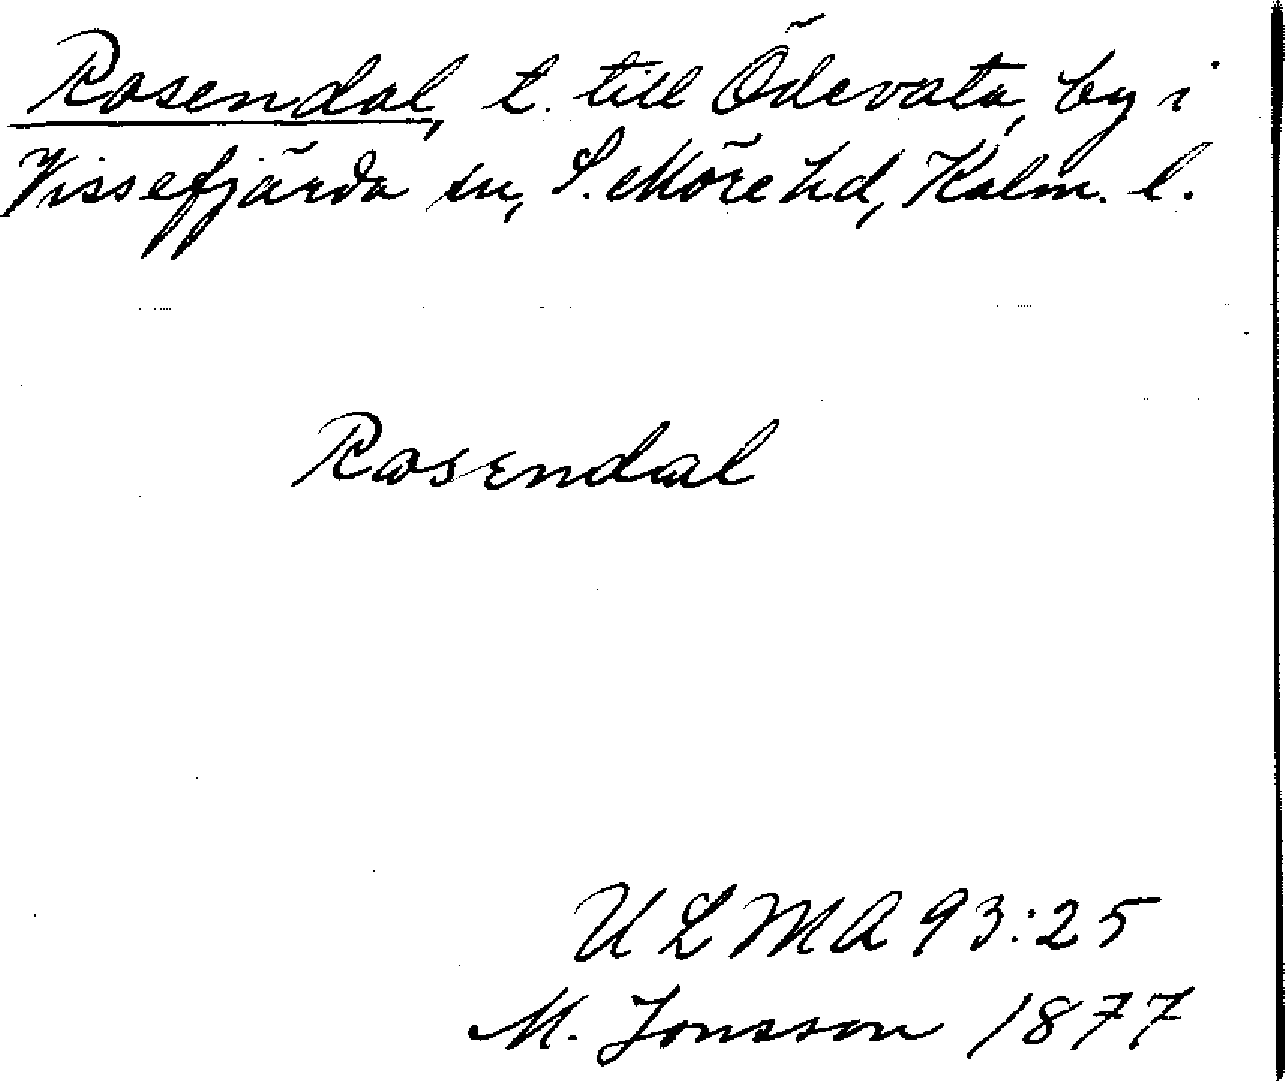 Rosendal, t. till Ödevata, by i
Vissefjärda sn, S. Möre hd, Kalm. l.
Rosendal
ULMA 93:25
M. Jonsson 1877